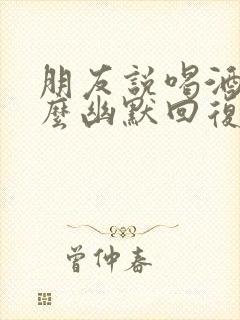 朋友說喝酒
麼幽默回復
曾仲春